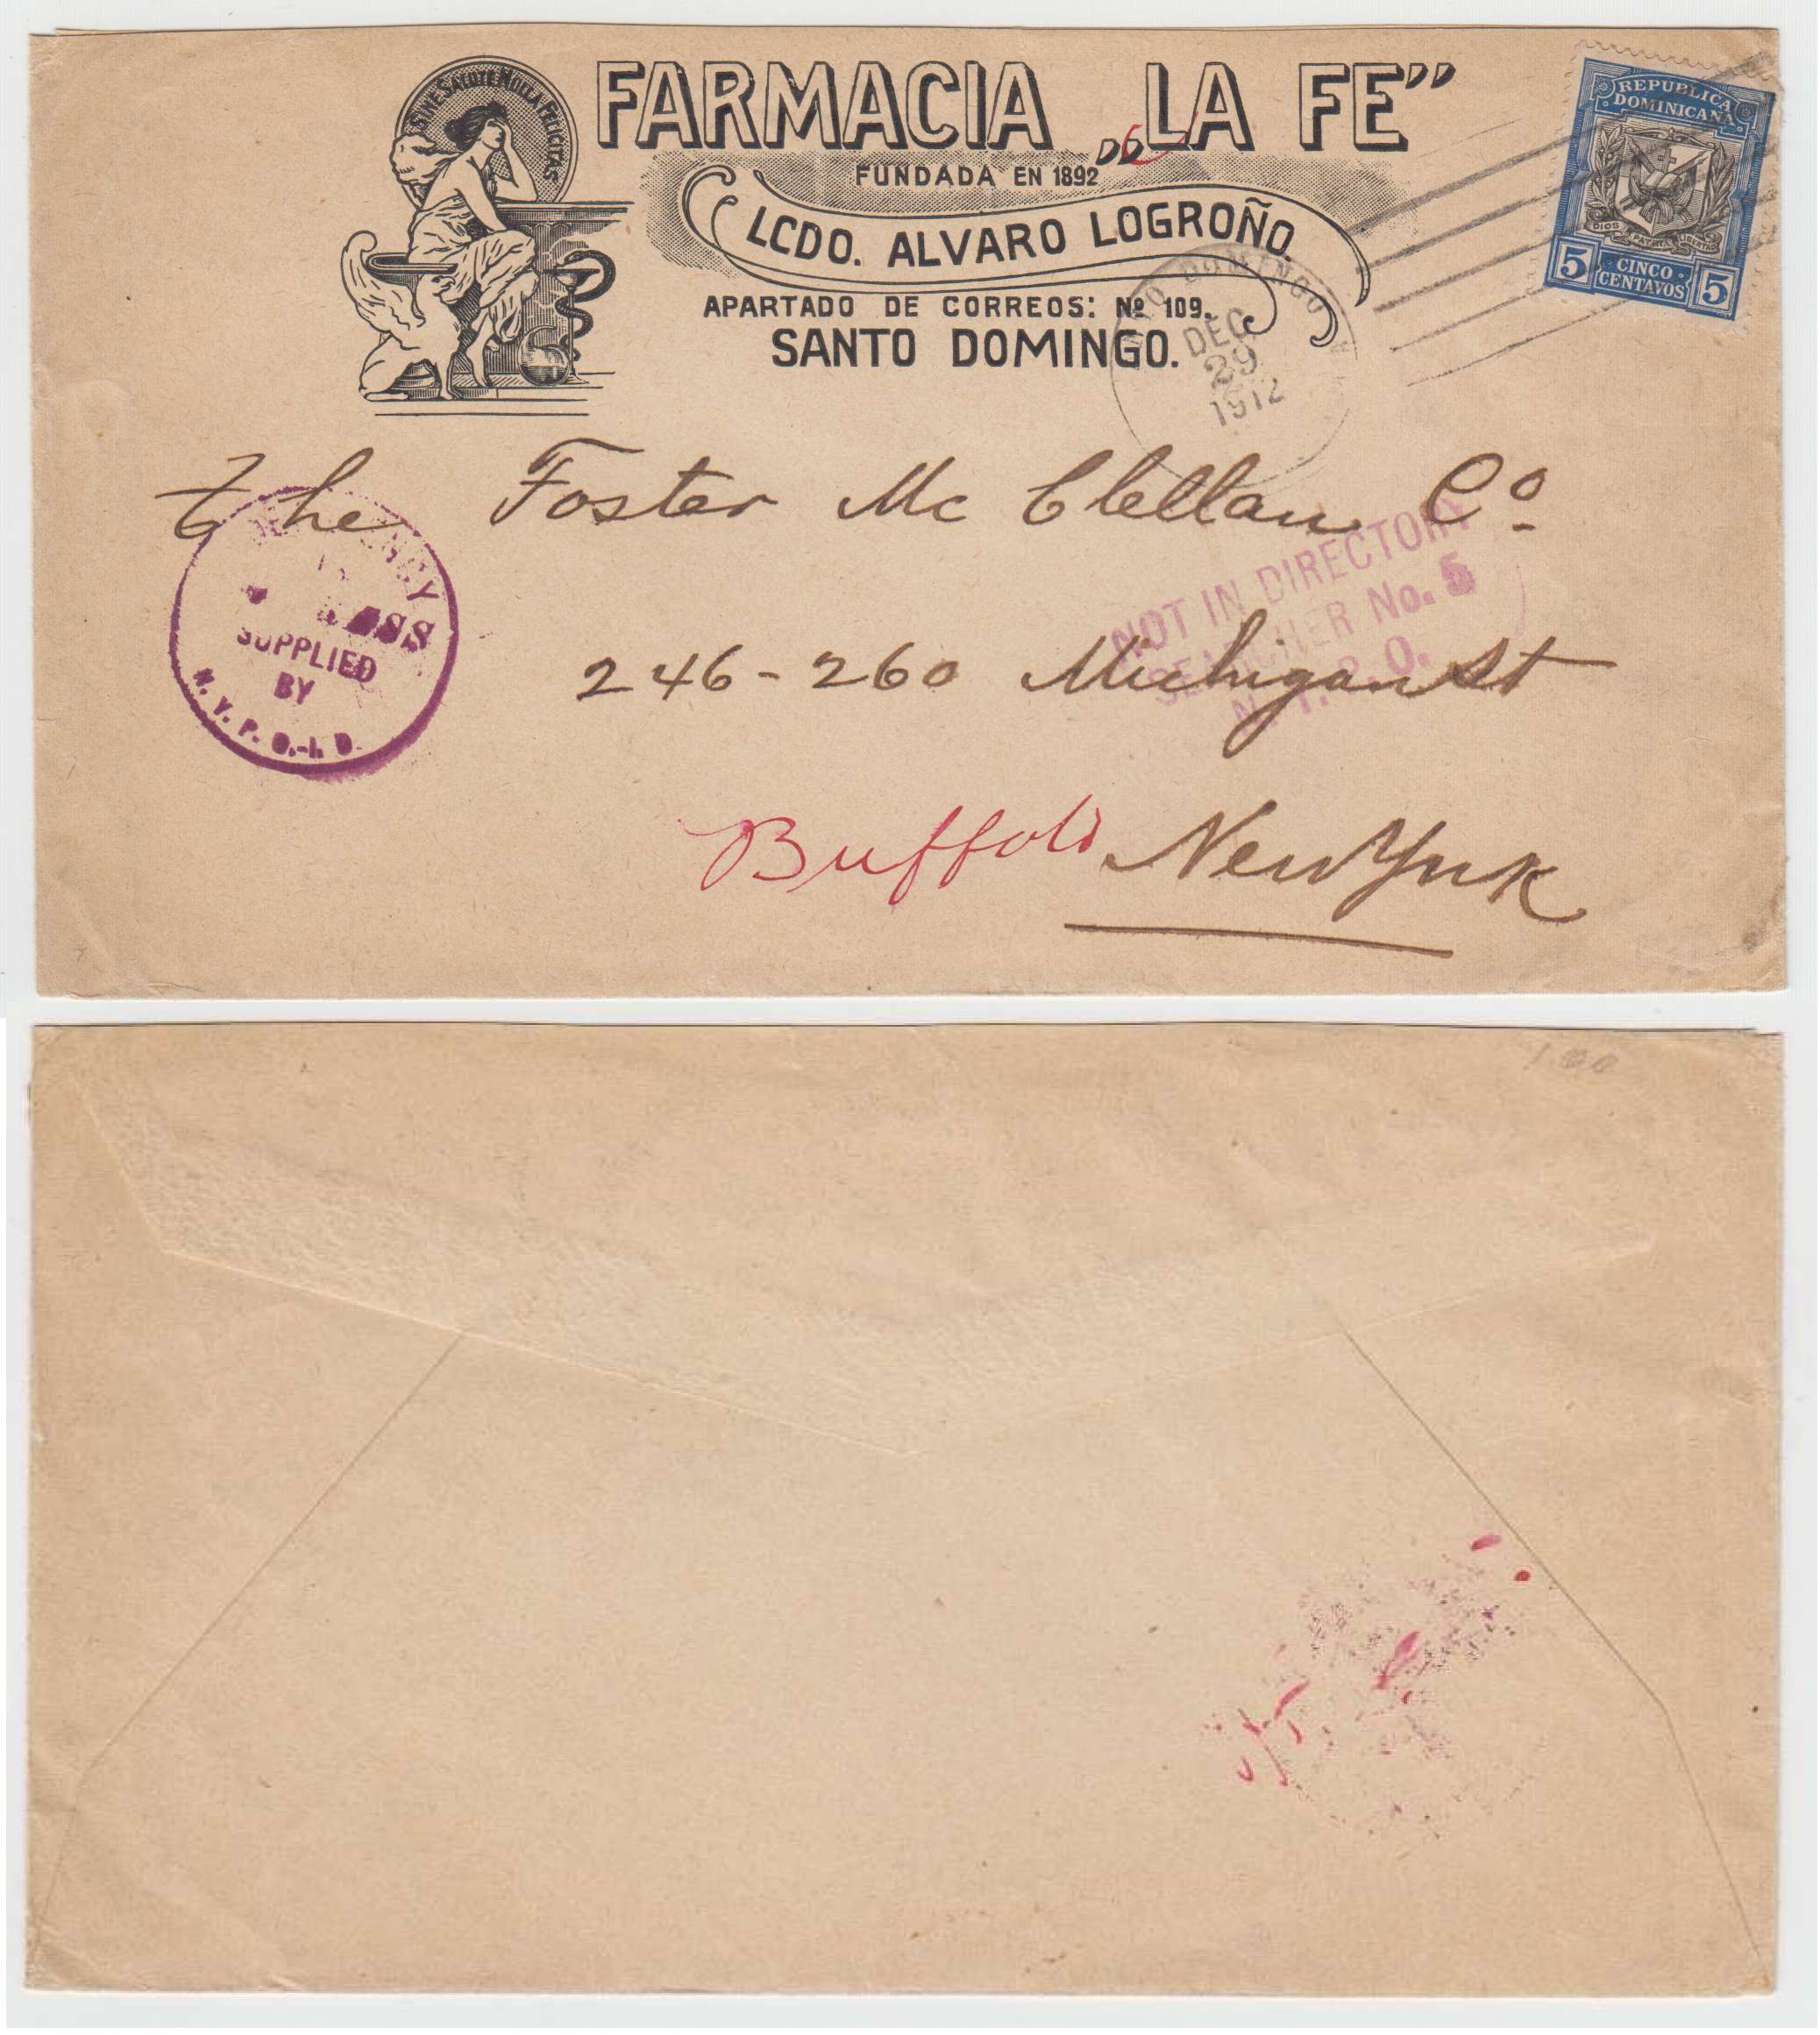 SINE SALUTE NULLA FELICITAS
FARMACIA „LA FE”
FUNDADA EN 1892
LCDO. ALVARO LOGROÑO.
APARTADO DE CORREOS: Nº 109.
SANTO DOMINGO.
REPUBLICA
DOMINICANA
DIOS PATRIA LIBERTAD
5 CINCO CENTAVOS 5
DOMINGO
DEC
29
1912
the Foster Mc Clellan Cº
NOT IN DIRECTORY
SEARCHER No. 5
SUPPLIED
BY
N. Y. P. O.-I. D.
246-260 Michigan St
Buffalo New York
1.00